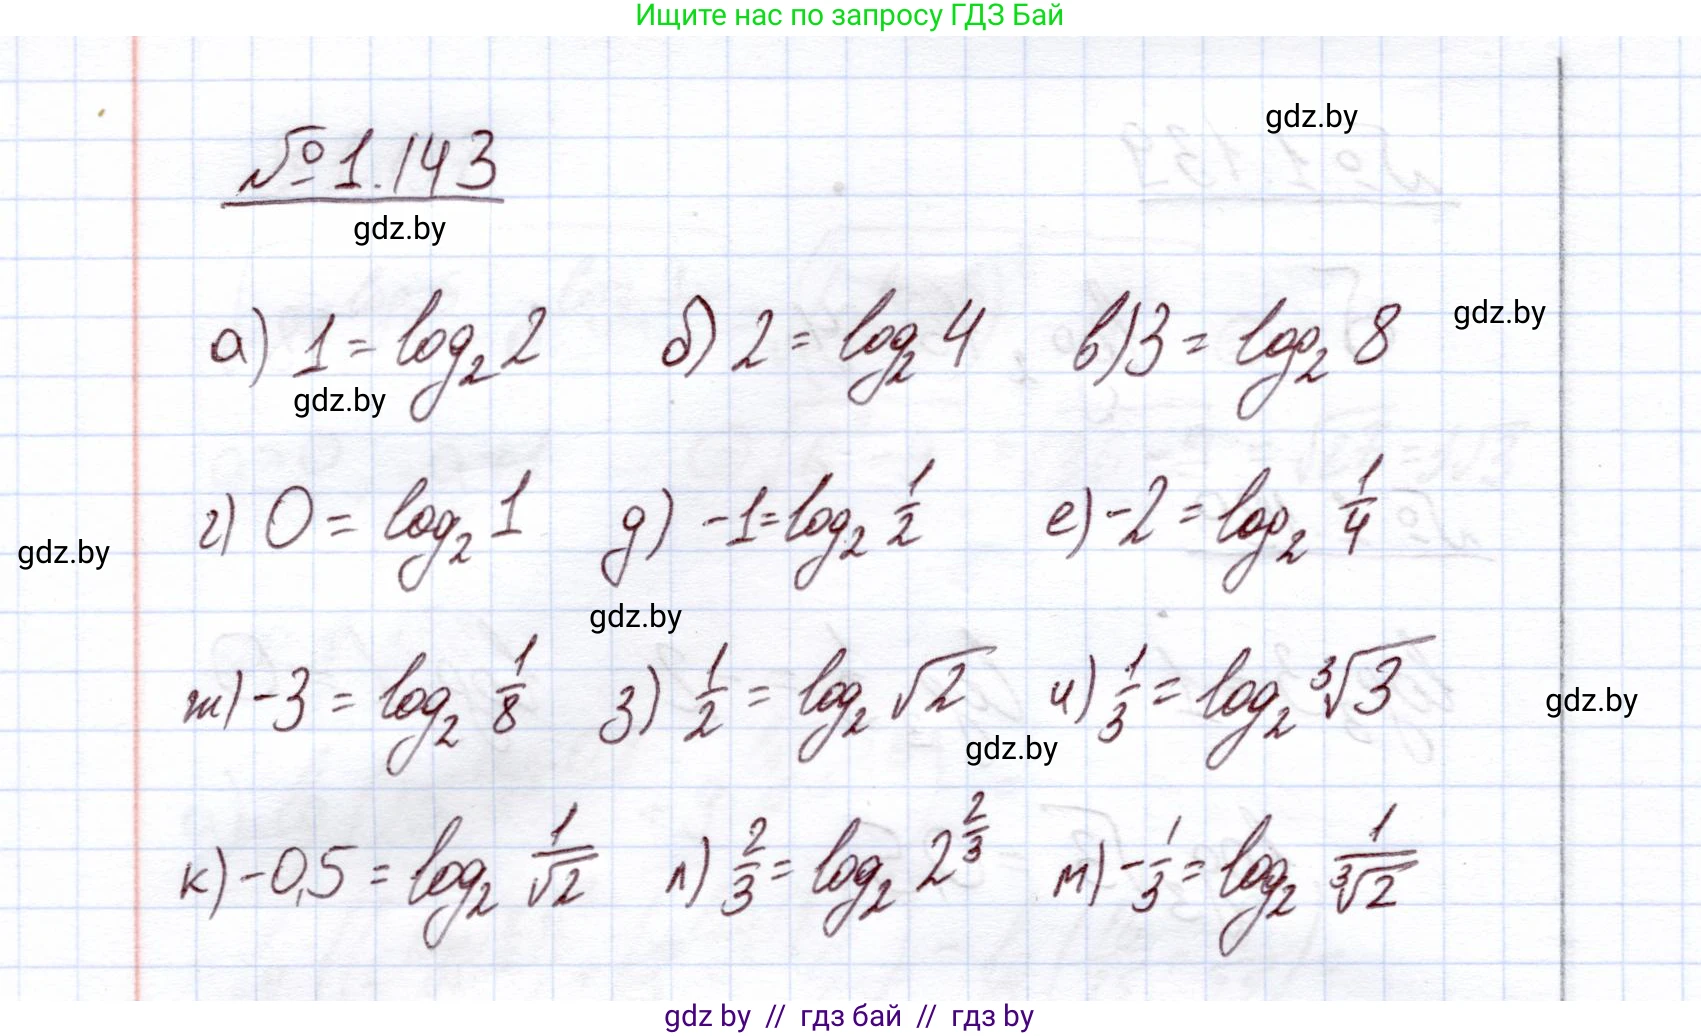 Ищите нас по запросу ГДЗ Бай
gdz.by
№1.143
gdz.by
а) 1 = log₂ 2 б) 2 = log₂ 4 в) 3 = log₂ 8
gdz.by
gdz.by
г) 0 = log₂ 1 д) -1 = log₂ 1/2 е) -2 = log₂ 1/4
gdz.by
gdz.by
ж) -3 = log₂ 1/8 з) 1/2 = log₂ √2 и) 1/3 = log₂ ∛3
gdz.by
gdz.by
к) -0,5 = log₂ 1/√2 л) 2/3 = log₂ 2^(2/3) м) -1/3 = log₂ 1/∛2
gdz by // гдз бай // гдз by